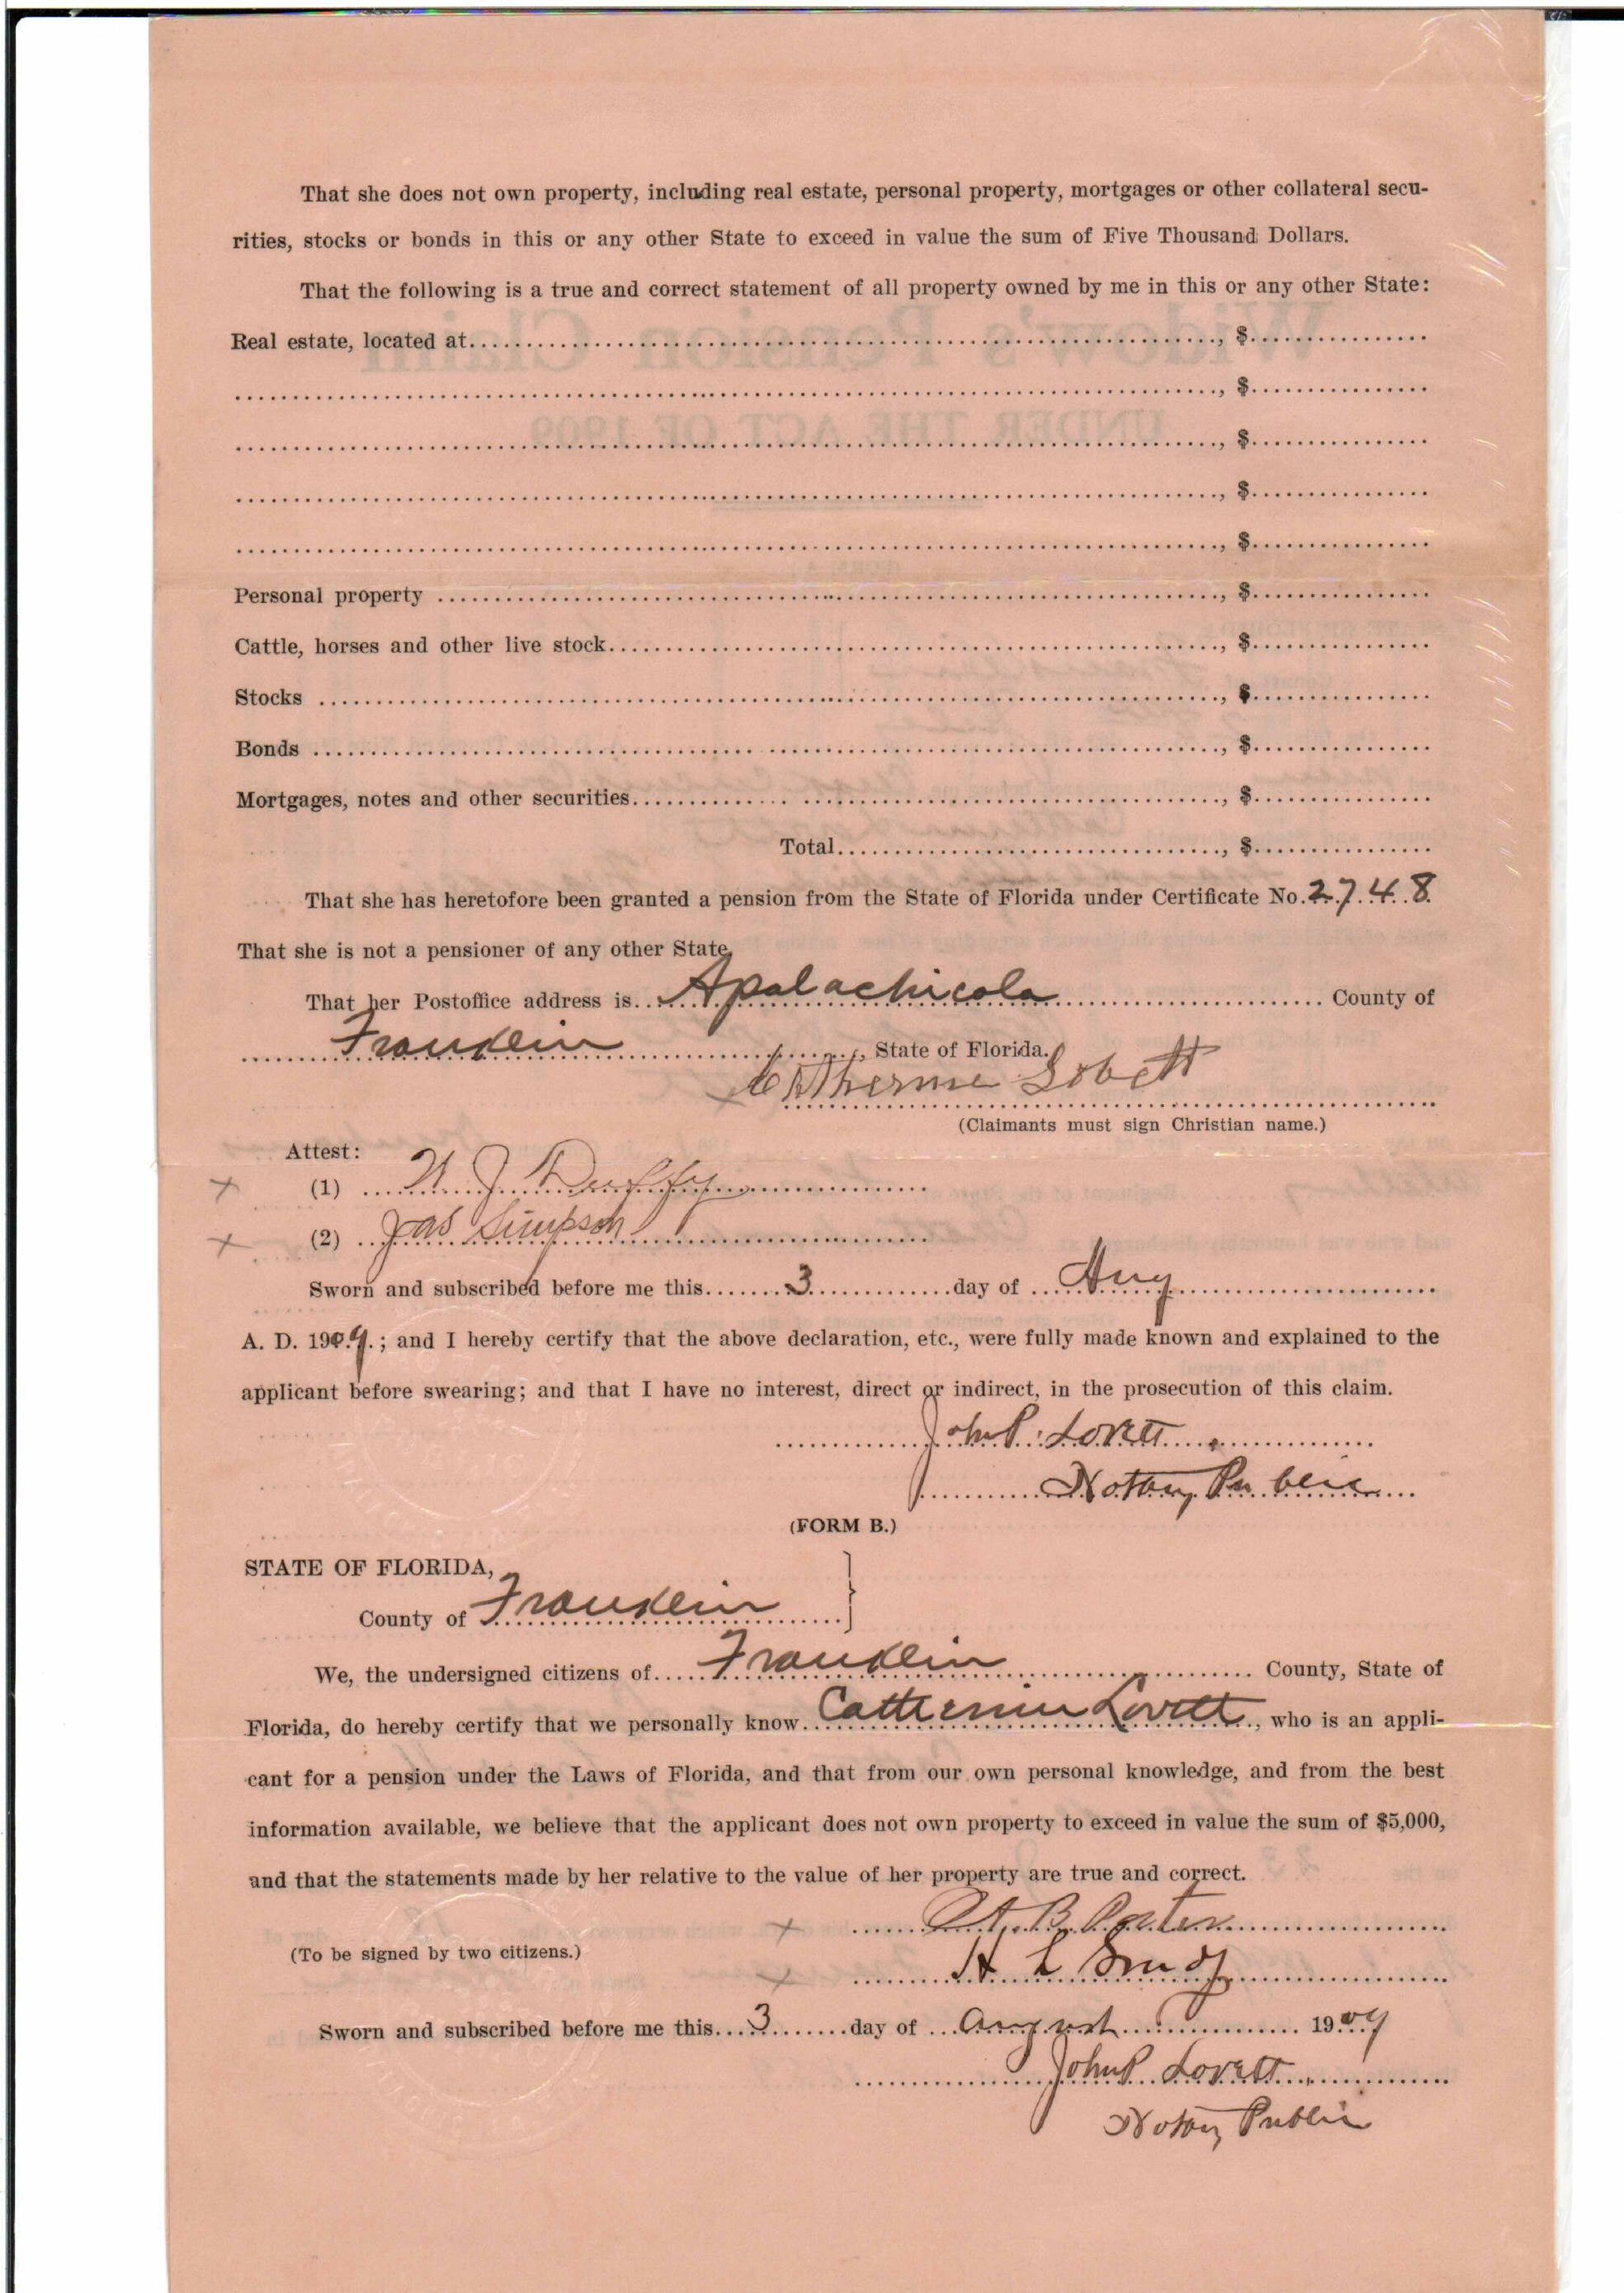 That she does not own property, including real estate, personal property, mortgages or other collateral secu-
rities, stocks or bonds in this or any other State to exceed in value the sum of Five Thousand Dollars.
That the following is a true and correct statement of all property owned by me in this or any other State:
Real estate, located at........, $........
........, $........
........, $........
........, $........
........, $........
Personal property ........, $........
Cattle, horses and other live stock........, $........
Stocks ........, $........
Bonds ........, $........
Mortgages, notes and other securities........, $........
Total........, $........
That she has heretofore been granted a pension from the State of Florida under Certificate No. 2748
That she is not a pensioner of any other State.
That her Postoffice address is.... Apalachicola ........ County of
........ Franklin ........, State of Florida.
Catherine Lovett
(Claimants must sign Christian name.)
Attest:
x (1) .... J. Duffy ........
x (2) .. Jas Simpson ........
Sworn and subscribed before me this........ 3 ........day of .... Aug ........
A. D. 1909.; and I hereby certify that the above declaration, etc., were fully made known and explained to the
applicant before swearing; and that I have no interest, direct or indirect, in the prosecution of this claim.
John P. Lovett
Notary Public
(FORM B.)
STATE OF FLORIDA,
County of Franklin
We, the undersigned citizens of.... Franklin ........ County, State of
Florida, do hereby certify that we personally know.. Catherine Lovett ...., who is an appli-
cant for a pension under the Laws of Florida, and that from our own personal knowledge, and from the best
information available, we believe that the applicant does not own property to exceed in value the sum of $5,000,
and that the statements made by her relative to the value of her property are true and correct.
x B. Porter
(To be signed by two citizens.)
x H L
Sworn and subscribed before me this.... 3 ....day of .... August ........ 1909
John P. Lovett
Notary Public